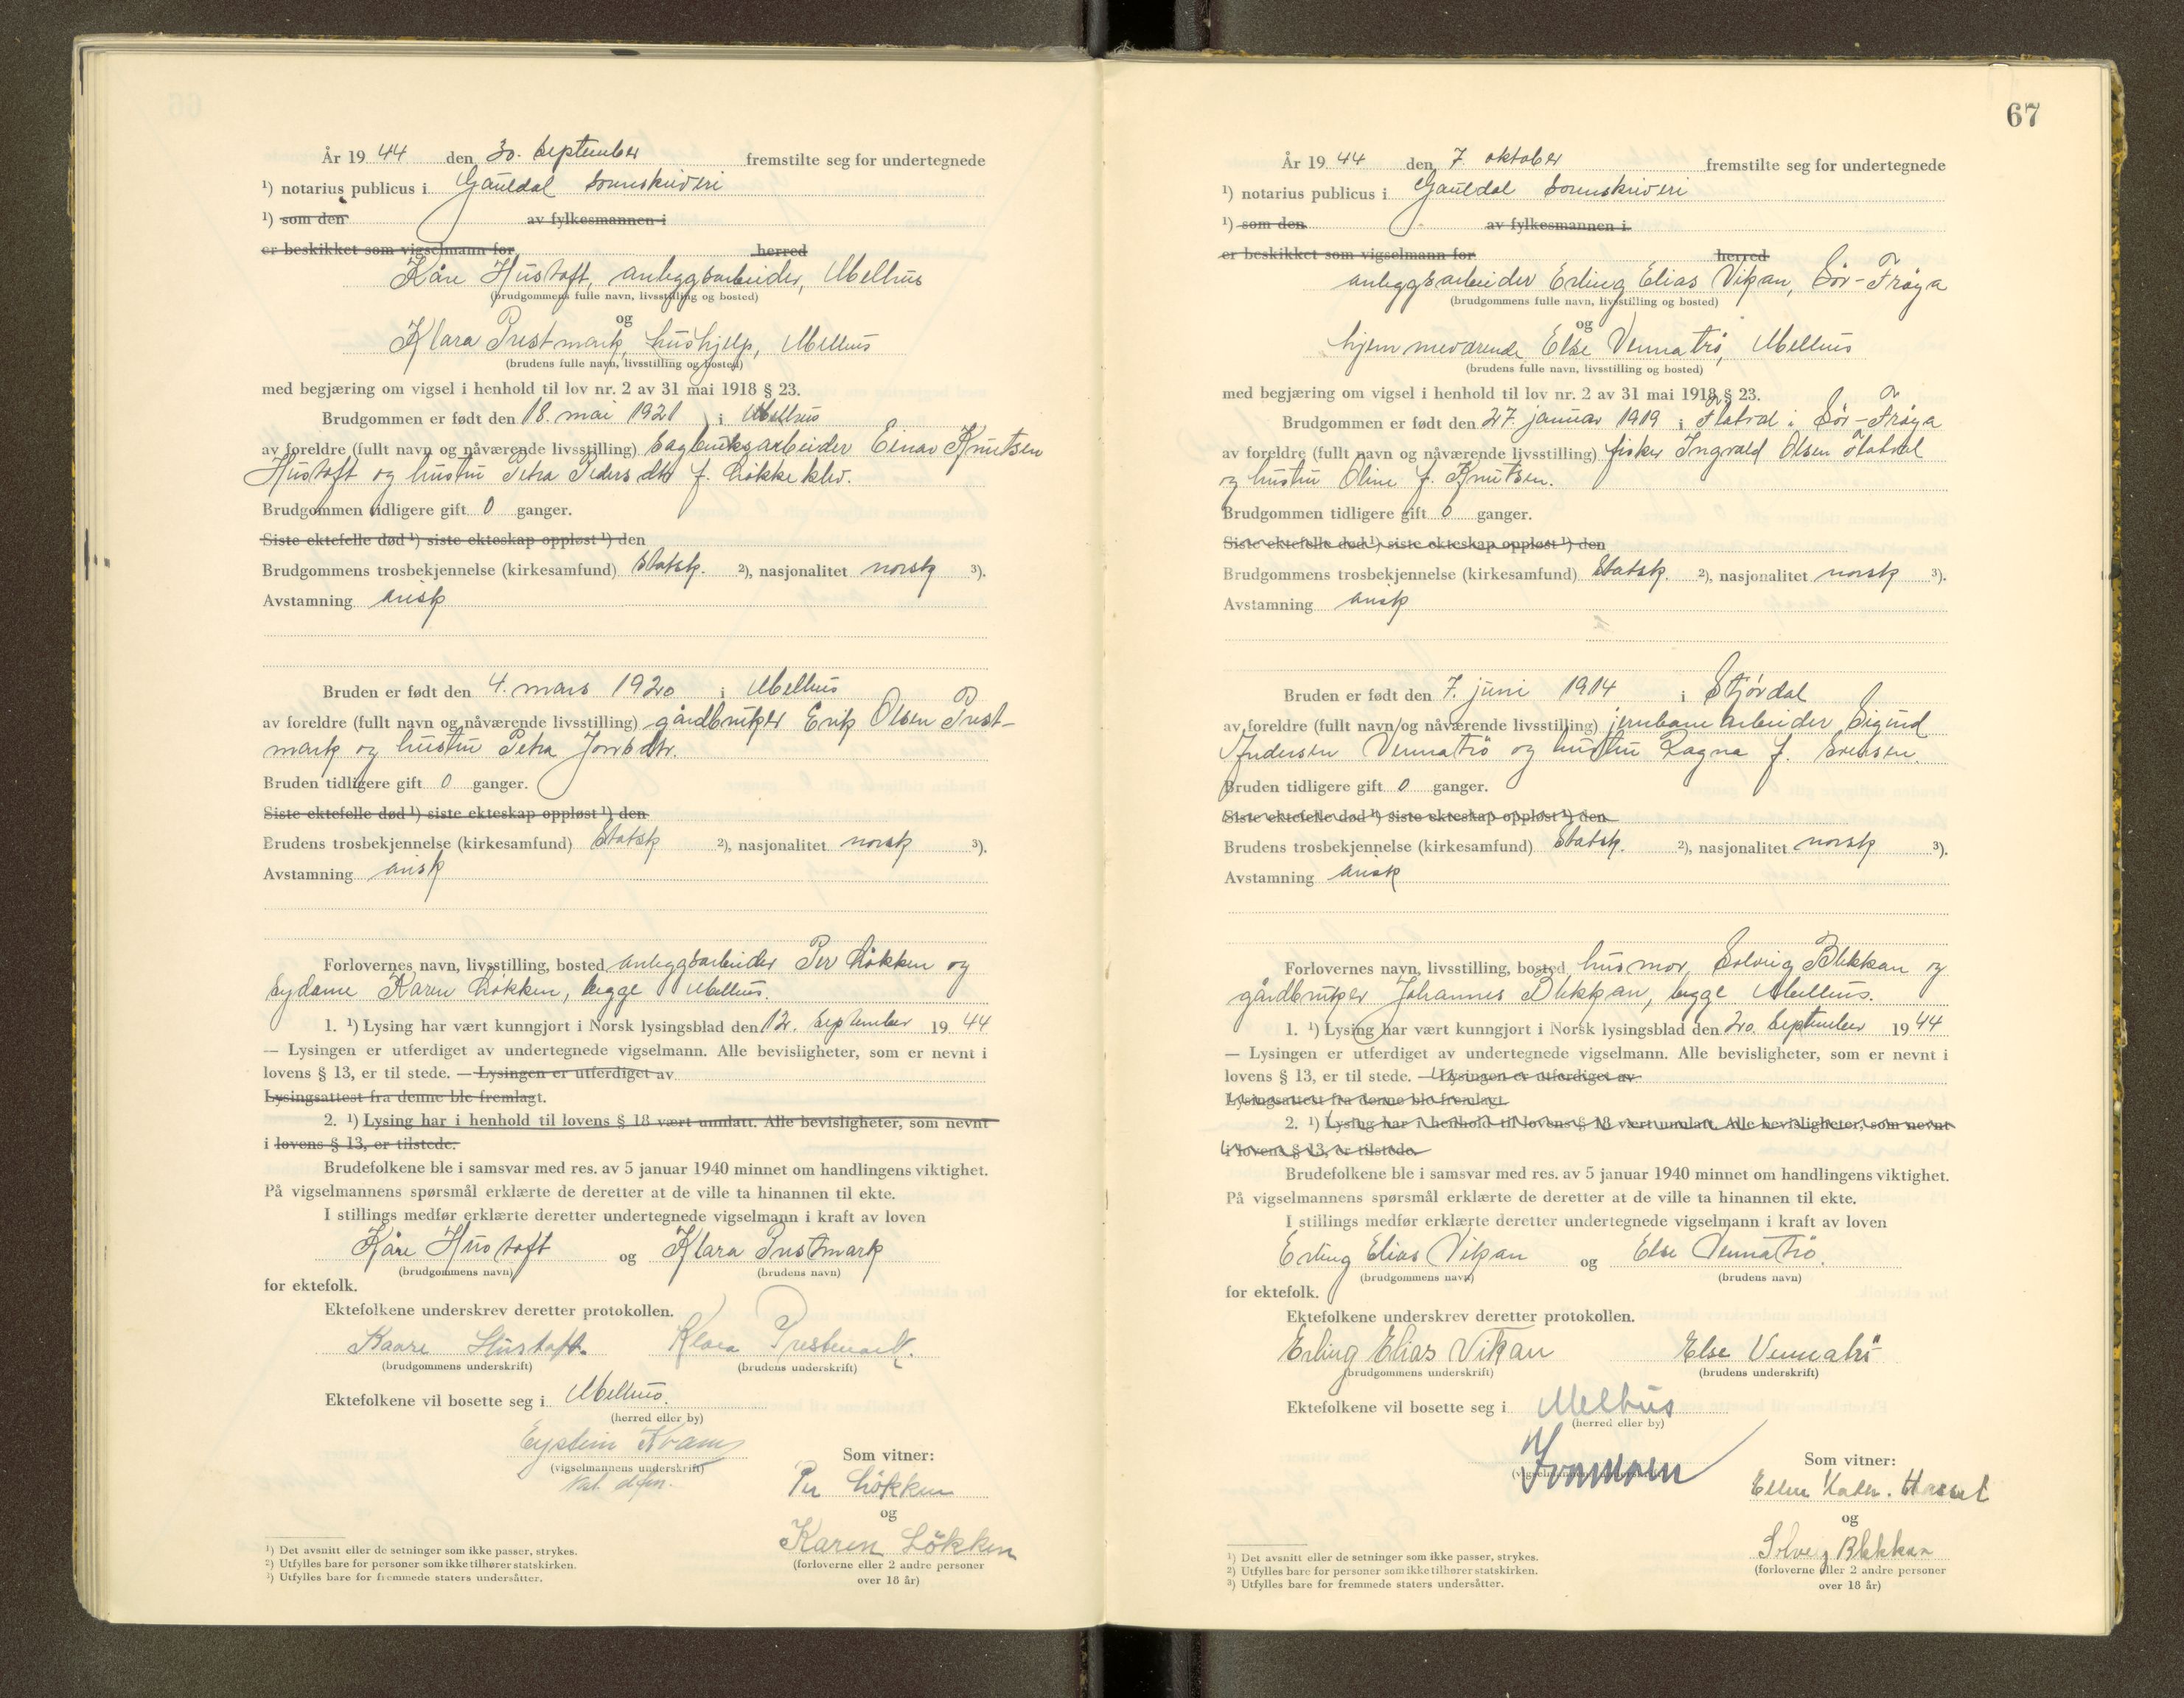 År 19 44 den 30. september fremstilte seg for undertegnede
¹) notarius publicus i Gauldal sorenskriveri
¹) som den av fylkesmannen i
er beskikket som vigselmann for herred
Kåre Hustoft, anleggsarbeider, Melhus
(brudgommens fulle navn, livsstilling og bosted)
og
Klara Prestmark, hushjelp, Melhus
(brudens fulle navn, livsstilling og bosted)
med begjæring om vigsel i henhold til lov nr. 2 av 31 mai 1918 § 23.
Brudgommen er født den 18. mai 1921 i Melhus
av foreldre (fullt navn og nåværende livsstilling) sagbruksarbeider Einar Knutsen
Hustoft og hustru Petra Pedersdtr f. Løkkeklev.
Brudgommen tidligere gift 0 ganger.
Siste ektefelle død ¹) siste ekteskap oppløst ¹) den
Brudgommens trosbekjennelse (kirkesamfund) Statsk. ²), nasjonalitet norsk ³).
Avstamning arisk
Bruden er født den 4. mars 1920 i Melhus
av foreldre (fullt navn og nåværende livsstilling) gårdbruker Erik Olsen Prest-
mark og hustru Petra Jonsdtr.
Bruden tidligere gift 0 ganger.
Siste ektefelle død ¹) siste ekteskap oppløst ¹) den
Brudens trosbekjennelse (kirkesamfund) Statsk ²), nasjonalitet norsk ³).
Avstamning arisk
Forlovernes navn, livsstilling, bosted anleggsarbeider Per Løkken og
sydame Karen Løkken, begge Melhus.
1. ¹) Lysing har vært kunngjort i Norsk lysingsblad den 12. september 19 44
— Lysingen er utferdiget av undertegnede vigselmann. Alle bevisligheter, som er nevnt i
lovens § 13, er til stede. — Lysingen er utferdiget av
Lysingsattest fra denne ble fremlagt.
2. ¹) Lysing har i henhold til lovens § 18 vært unnlatt. Alle bevisligheter, som nevnt
i lovens § 13, er tilstede.
Brudefolkene ble i samsvar med res. av 5 januar 1940 minnet om handlingens viktighet.
På vigselmannens spørsmål erklærte de deretter at de ville ta hinannen til ekte.
I stillings medfør erklærte deretter undertegnede vigselmann i kraft av loven
Kåre Hustoft og Klara Prestmark
(brudgommens navn) (brudens navn)
for ektefolk.
Ektefolkene underskrev deretter protokollen.
Kaare Hustoft. Klara Prestmark.
(brudgommens underskrift) (brudens underskrift)
Ektefolkene vil bosette seg i Melhus.
(herred eller by)
Eystein Kvam
(vigselmannens underskrift)
Som vitner:
Per Løkken
og
Karen Løkken
(forloverne eller 2 andre personer
over 18 år)
¹) Det avsnitt eller de setninger som ikke passer, strykes.
²) Utfylles bare for personer som ikke tilhører statskirken.
³) Utfylles bare for fremmede staters undersåtter.
67
År 19 44 den 7. oktober fremstilte seg for undertegnede
¹) notarius publicus i Gauldal sorenskriveri
¹) som den av fylkesmannen i
er beskikket som vigselmann for herred
anleggsarbeider Erling Elias Vikan, Sør-Frøya
(brudgommens fulle navn, livsstilling og bosted)
og
hjemmeværende Else Vennatrø, Melhus
(brudens fulle navn, livsstilling og bosted)
med begjæring om vigsel i henhold til lov nr. 2 av 31 mai 1918 § 23.
Brudgommen er født den 27. januar 1919 i Flatval i Sør-Frøya
av foreldre (fullt navn og nåværende livsstilling) fisker Ingvald Olsen Flatval
og hustru Oline f. Knutsen.
Brudgommen tidligere gift 0 ganger.
Siste ektefelle død ¹) siste ekteskap oppløst ¹) den
Brudgommens trosbekjennelse (kirkesamfund) Statsk. ²), nasjonalitet norsk ³).
Avstamning arisk
Bruden er født den 7. juni 1914 i Stjørdal
av foreldre (fullt navn og nåværende livsstilling) jernbanearbeider Sigurd
Andersen Vennatrø og hustru Ragna f. Svensen.
Bruden tidligere gift 0 ganger.
Siste ektefelle død ¹) siste ekteskap oppløst ¹) den
Brudens trosbekjennelse (kirkesamfund) Statsk. ²), nasjonalitet norsk ³).
Avstamning arisk
Forlovernes navn, livsstilling, bosted husmor Solveig Blekkan og
gårdbruker Johannes Blekkan, begge Melhus.
1. ¹) Lysing har vært kunngjort i Norsk lysingsblad den 20. september 19 44
— Lysingen er utferdiget av undertegnede vigselmann. Alle bevisligheter, som er nevnt i
lovens § 13, er til stede. — Lysingen er utferdiget av
Lysingsattest fra denne ble fremlagt.
2. ¹) Lysing har i henhold til lovens § 18 vært unnlatt. Alle bevisligheter, som nevnt
i lovens § 13, er tilstede.
Brudefolkene ble i samsvar med res. av 5 januar 1940 minnet om handlingens viktighet.
På vigselmannens spørsmål erklærte de deretter at de ville ta hinannen til ekte.
I stillings medfør erklærte deretter undertegnede vigselmann i kraft av loven
Erling Elias Vikan og Else Vennatrø.
(brudgommens navn) (brudens navn)
for ektefolk.
Ektefolkene underskrev deretter protokollen.
Erling Elias Vikan Else Vennatrø
(brudgommens underskrift) (brudens underskrift)
Ektefolkene vil bosette seg i Melhus
(herred eller by)
(vigselmannens underskrift)
Som vitner:
Ellen
og
Solveig Blekkan
(forloverne eller 2 andre personer
over 18 år)
¹) Det avsnitt eller de setninger som ikke passer, strykes.
²) Utfylles bare for personer som ikke tilhører statskirken.
³) Utfylles bare for fremmede staters undersåtter.